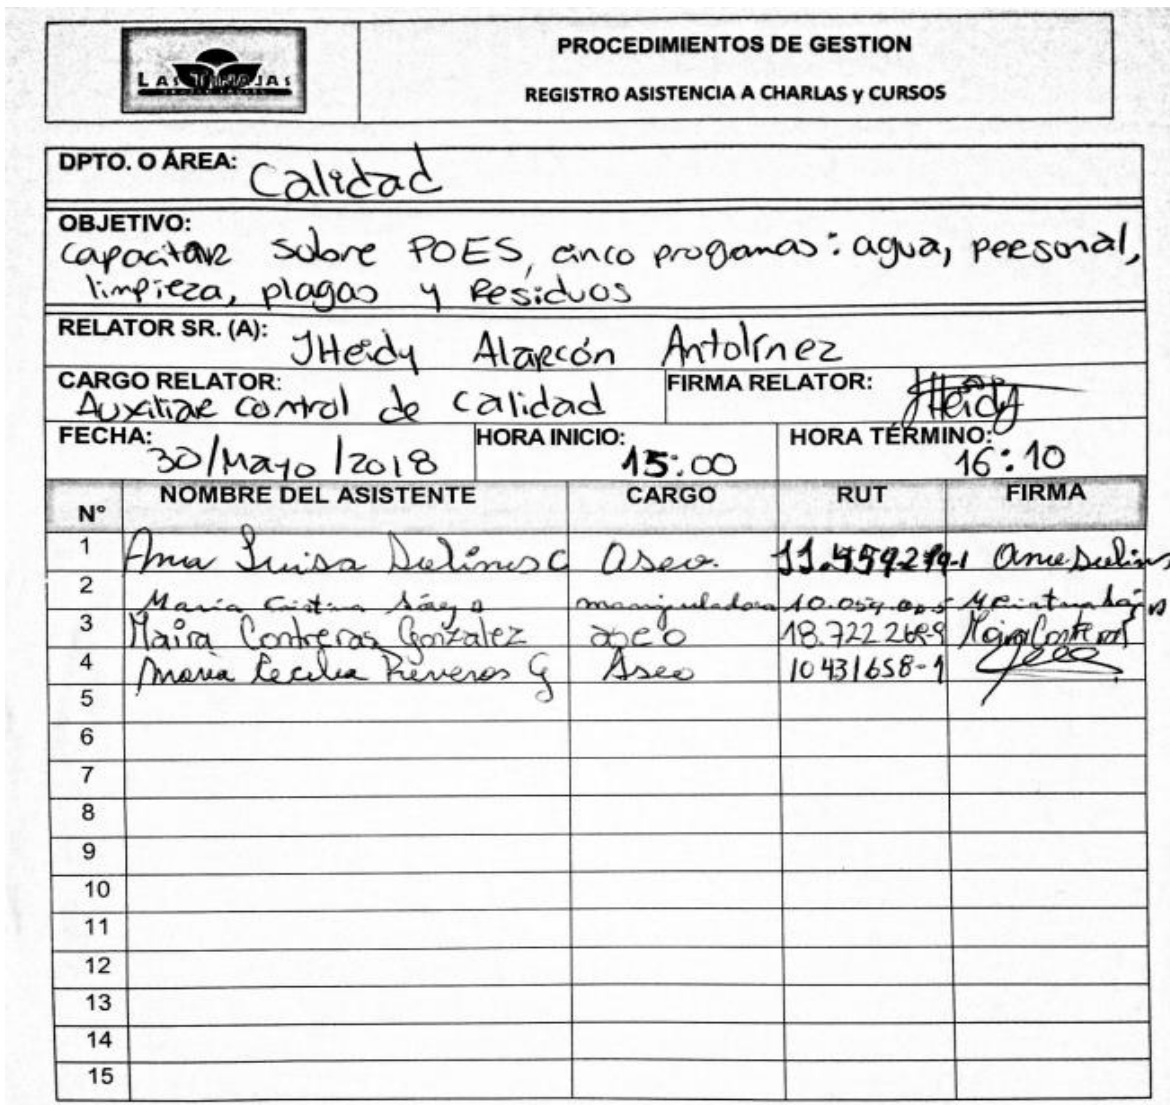 LAS TINAJAS
PROCEDIMIENTOS DE GESTION
REGISTRO ASISTENCIA A CHARLAS y CURSOS
DPTO. O ÁREA: Calidad
OBJETIVO:
Capacitar sobre POES, cinco programas: agua, personal,
limpieza, plagas y Residuos
RELATOR SR. (A): JHeidy Alarcón Antolínez
CARGO RELATOR: FIRMA RELATOR: JHeidy
Auxiliar control de calidad
FECHA: 30/Mayo/2018 HORA INICIO: 15:00 HORA TÉRMINO: 16:10
N° NOMBRE DEL ASISTENTE CARGO RUT FIRMA
1 Ana Luisa C aseo.
2 María Cristina manipuladora
3 Maira Contreras Gonzalez aseo 18.722 Maira Contreras
4 Maria Cecilia G Aseo 10431658-1
5
6
7
8
9
10
11
12
13
14
15